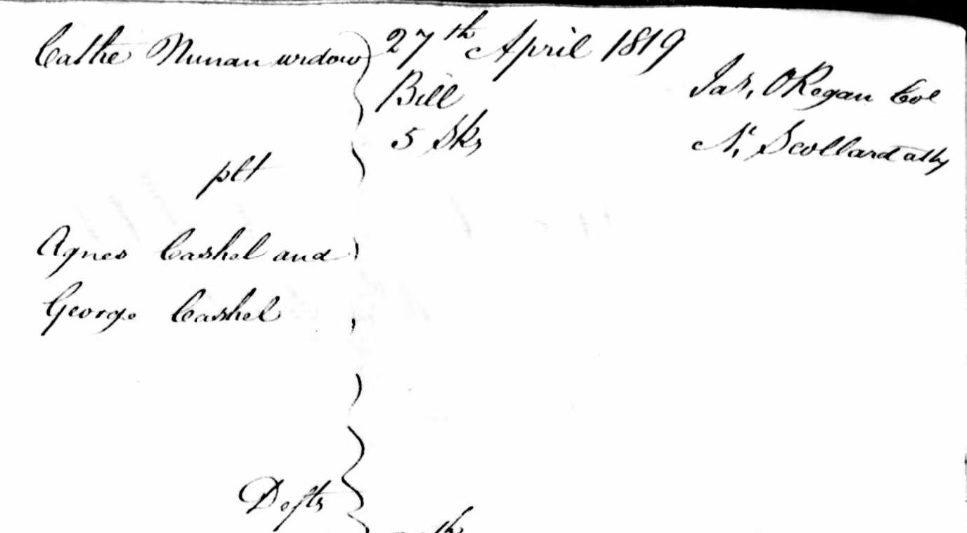 Cathe Nunan widow
plt
Agnes Cashel and
George Cashel
Defts
27th April 1819
Bill
5 Sks
Jas. O'Regan Col
N. Scollard atty